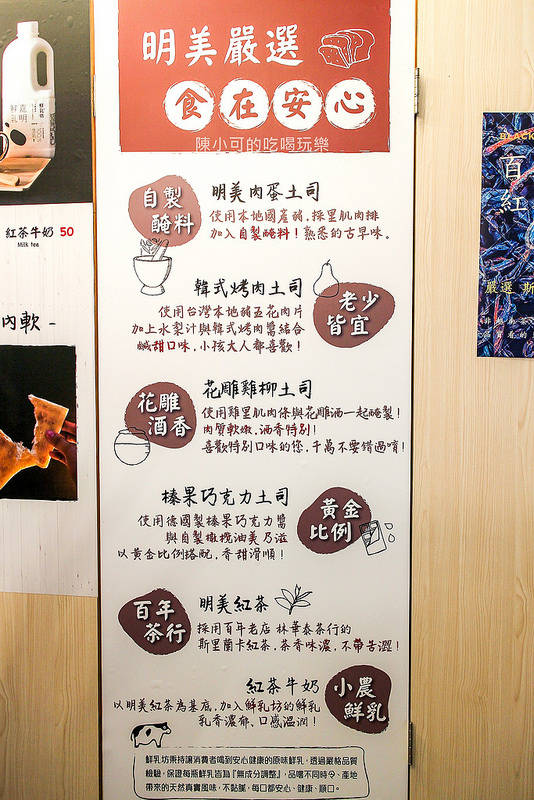 明美嚴選
食在安心
陳小可的吃喝玩樂
自製
醃料
明美肉蛋土司
使用本地國產豬,採里肌肉排
加入自製醃料!熟悉的古早味。
韓式烤肉土司
老少
皆宜
使用台灣本地豬五花肉片
加上水梨汁與韓式烤肉醬結合
鹹甜口味,小孩大人都喜歡!
花雕
酒香
花雕雞柳土司
使用雞里肌肉條與花雕酒一起醃製!
肉質軟嫩,酒香特別!
喜歡特別口味的您,千萬不要錯過唷!
榛果巧克力土司
黃金
比例
使用德國製榛果巧克力醬
與自製橄欖油美乃滋
以黃金比例搭配,香甜滑順!
百年
茶行
明美紅茶
採用百年老店 林華泰茶行的
斯里蘭卡紅茶,茶香味濃,不帶苦澀!
紅茶牛奶
小農
鮮乳
以明美紅茶為基底,加入鮮乳坊的鮮乳
乳香濃郁、口感溫潤!
鮮乳坊秉持讓消費者喝到安心健康的原味鮮乳,透過嚴格品質
檢驗,保證每瓶鮮乳皆為『無成分調整』,品嚐不同時令、產地
帶來的天然真實風味,不黏膩,每口都安心、健康、順口。
紅茶牛奶 50
Milk tea
內軟 -
BLACK
百
紅
嚴選 斯